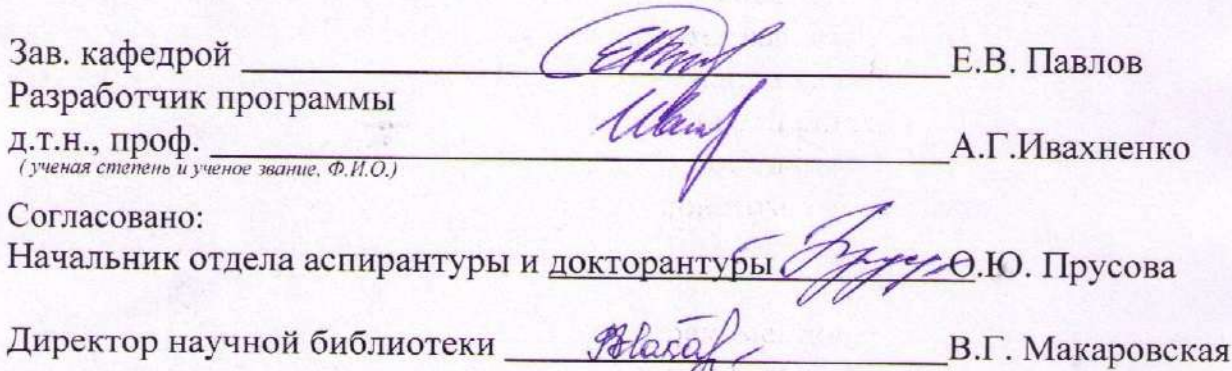 Зав. кафедрой Е.В. Павлов
Разработчик программы
д.т.н., проф. А.Г.Ивахненко
(ученая степень и ученое звание, Ф.И.О.)
Согласовано:
Начальник отдела аспирантуры и докторантуры О.Ю. Прусова
Директор научной библиотеки В.Г. Макаровская